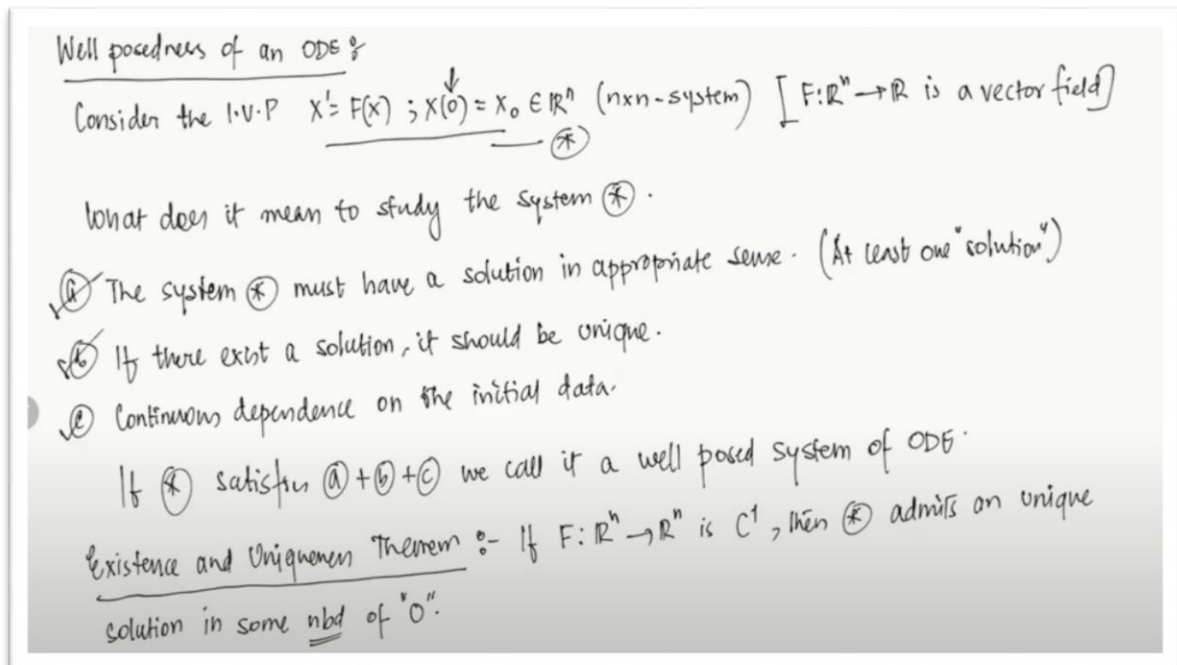 Well posedness of an ODE :
Consider the I.V.P X' = F(X) ; X(0) = X₀ ∈ ℝⁿ (n×n-system) [F:ℝⁿ→ℝ is a vector field]
— ⊛
What does it mean to study the system ⊛.
ⓐ The system ⊛ must have a solution in appropriate sense. (At least one "solution")
ⓑ If there exist a solution, it should be unique.
ⓒ Continuous dependence on the initial data.
If ⊛ satisfies ⓐ+ⓑ+ⓒ we call it a well posed system of ODE.
Existence and Uniqueness Theorem :- If F: ℝⁿ→ℝⁿ is C¹, then ⊛ admits an unique
solution in some nbd of "0".